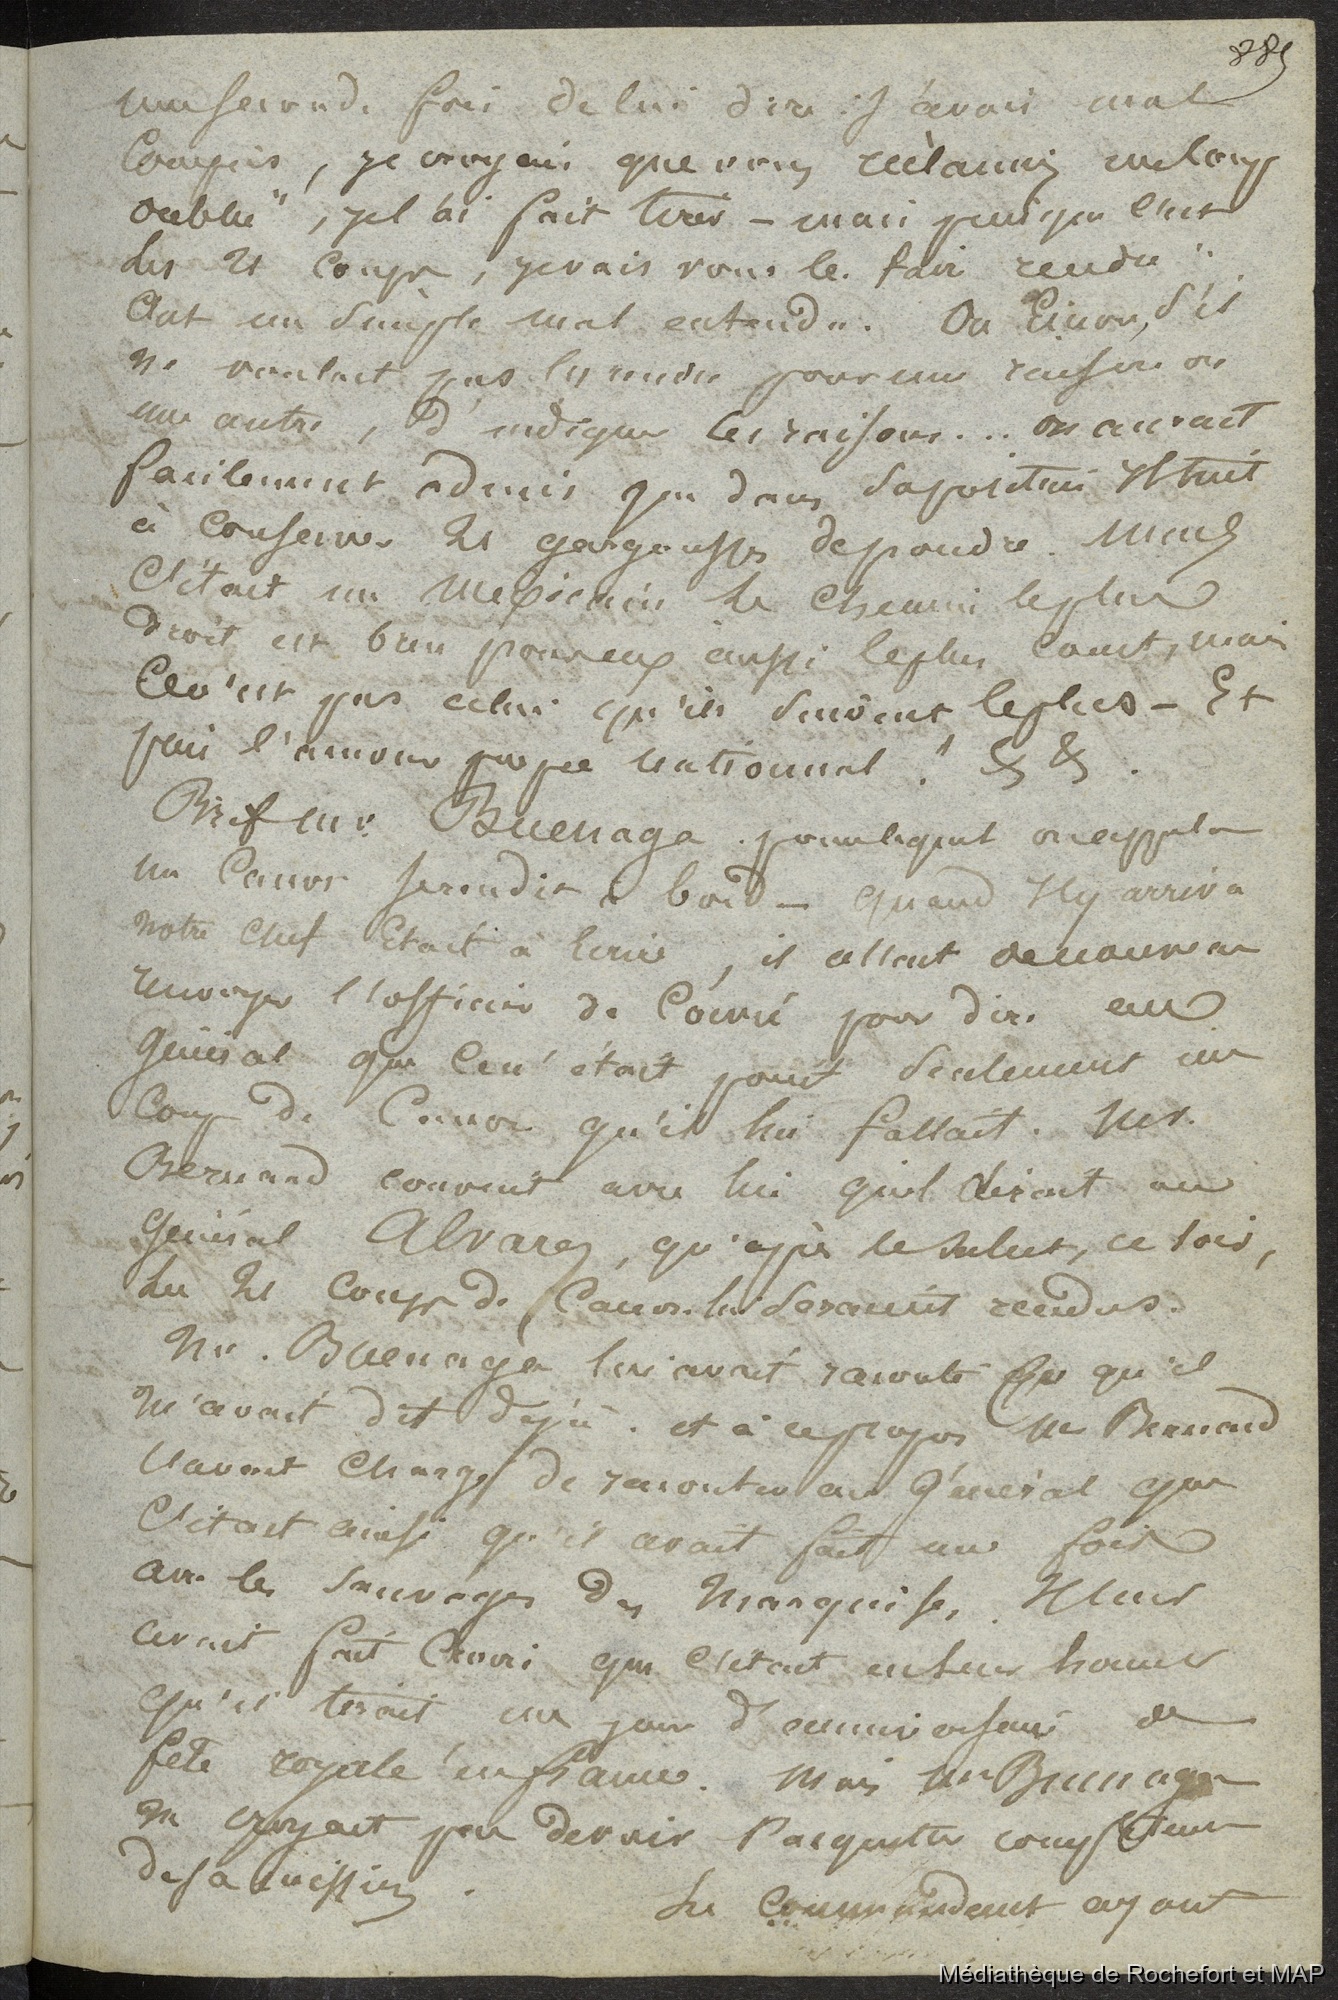 885
une seconde fois de lui dire : J'avais mal
compris, je croyais que vous réclamiez un coup
oublié", je l'ai fait tirer — mais puisque c'est
les 21 coups, je vais vous le faire rendre".
C'est un simple mal entendu. Ou sinon, s'il
ne voulait pas les rendre pour une raison ou
une autre, d'indiquer les raisons... on aurait
facilement admis que dans sa position il tint
à conserver 21 gargousses de poudre. Mais
C'était un Mexicain le chemin le plus
droit est bien pour eux aussi le plus court, mais
Ce n'est pas celui qu'ils suivent le plus — Et
puis l'amour propre national ! & &.
Bref Mr. Buenaga pour lequel on appela
un canot se rendit à bord — quand il y arriva
notre chef était à terre, il allait de nouveau
renvoyer l'officier de Corvée pour dire au
Général que ce n'était point seulement un
Coup de Canon qu'il lui fallait. Mr.
Bernard convint avec lui qu'il dirait au
Général Alvarez, qu'après le salut, ce soir,
les 21 coups de Canon lui seraient rendus.
Mr. Buenaga lui avait raconté ce qu'il
m'avait dit déjà. et à ce propos Mr Bernard
l'avait chargé de raconter au Général que
C'était ainsi qu'il avait fait une fois
avec les sauvages des Marquises. Il leur
avait fait croire que c'était en leur honneur
qu'il tirait un jour d'anniversaire de
fête royale en france. Mais Mr Buenaga
ne croyait pas devoir s'acquitter complètement
de sa mission.
Le Commandant ayant
Médiathèque de Rochefort et MAP